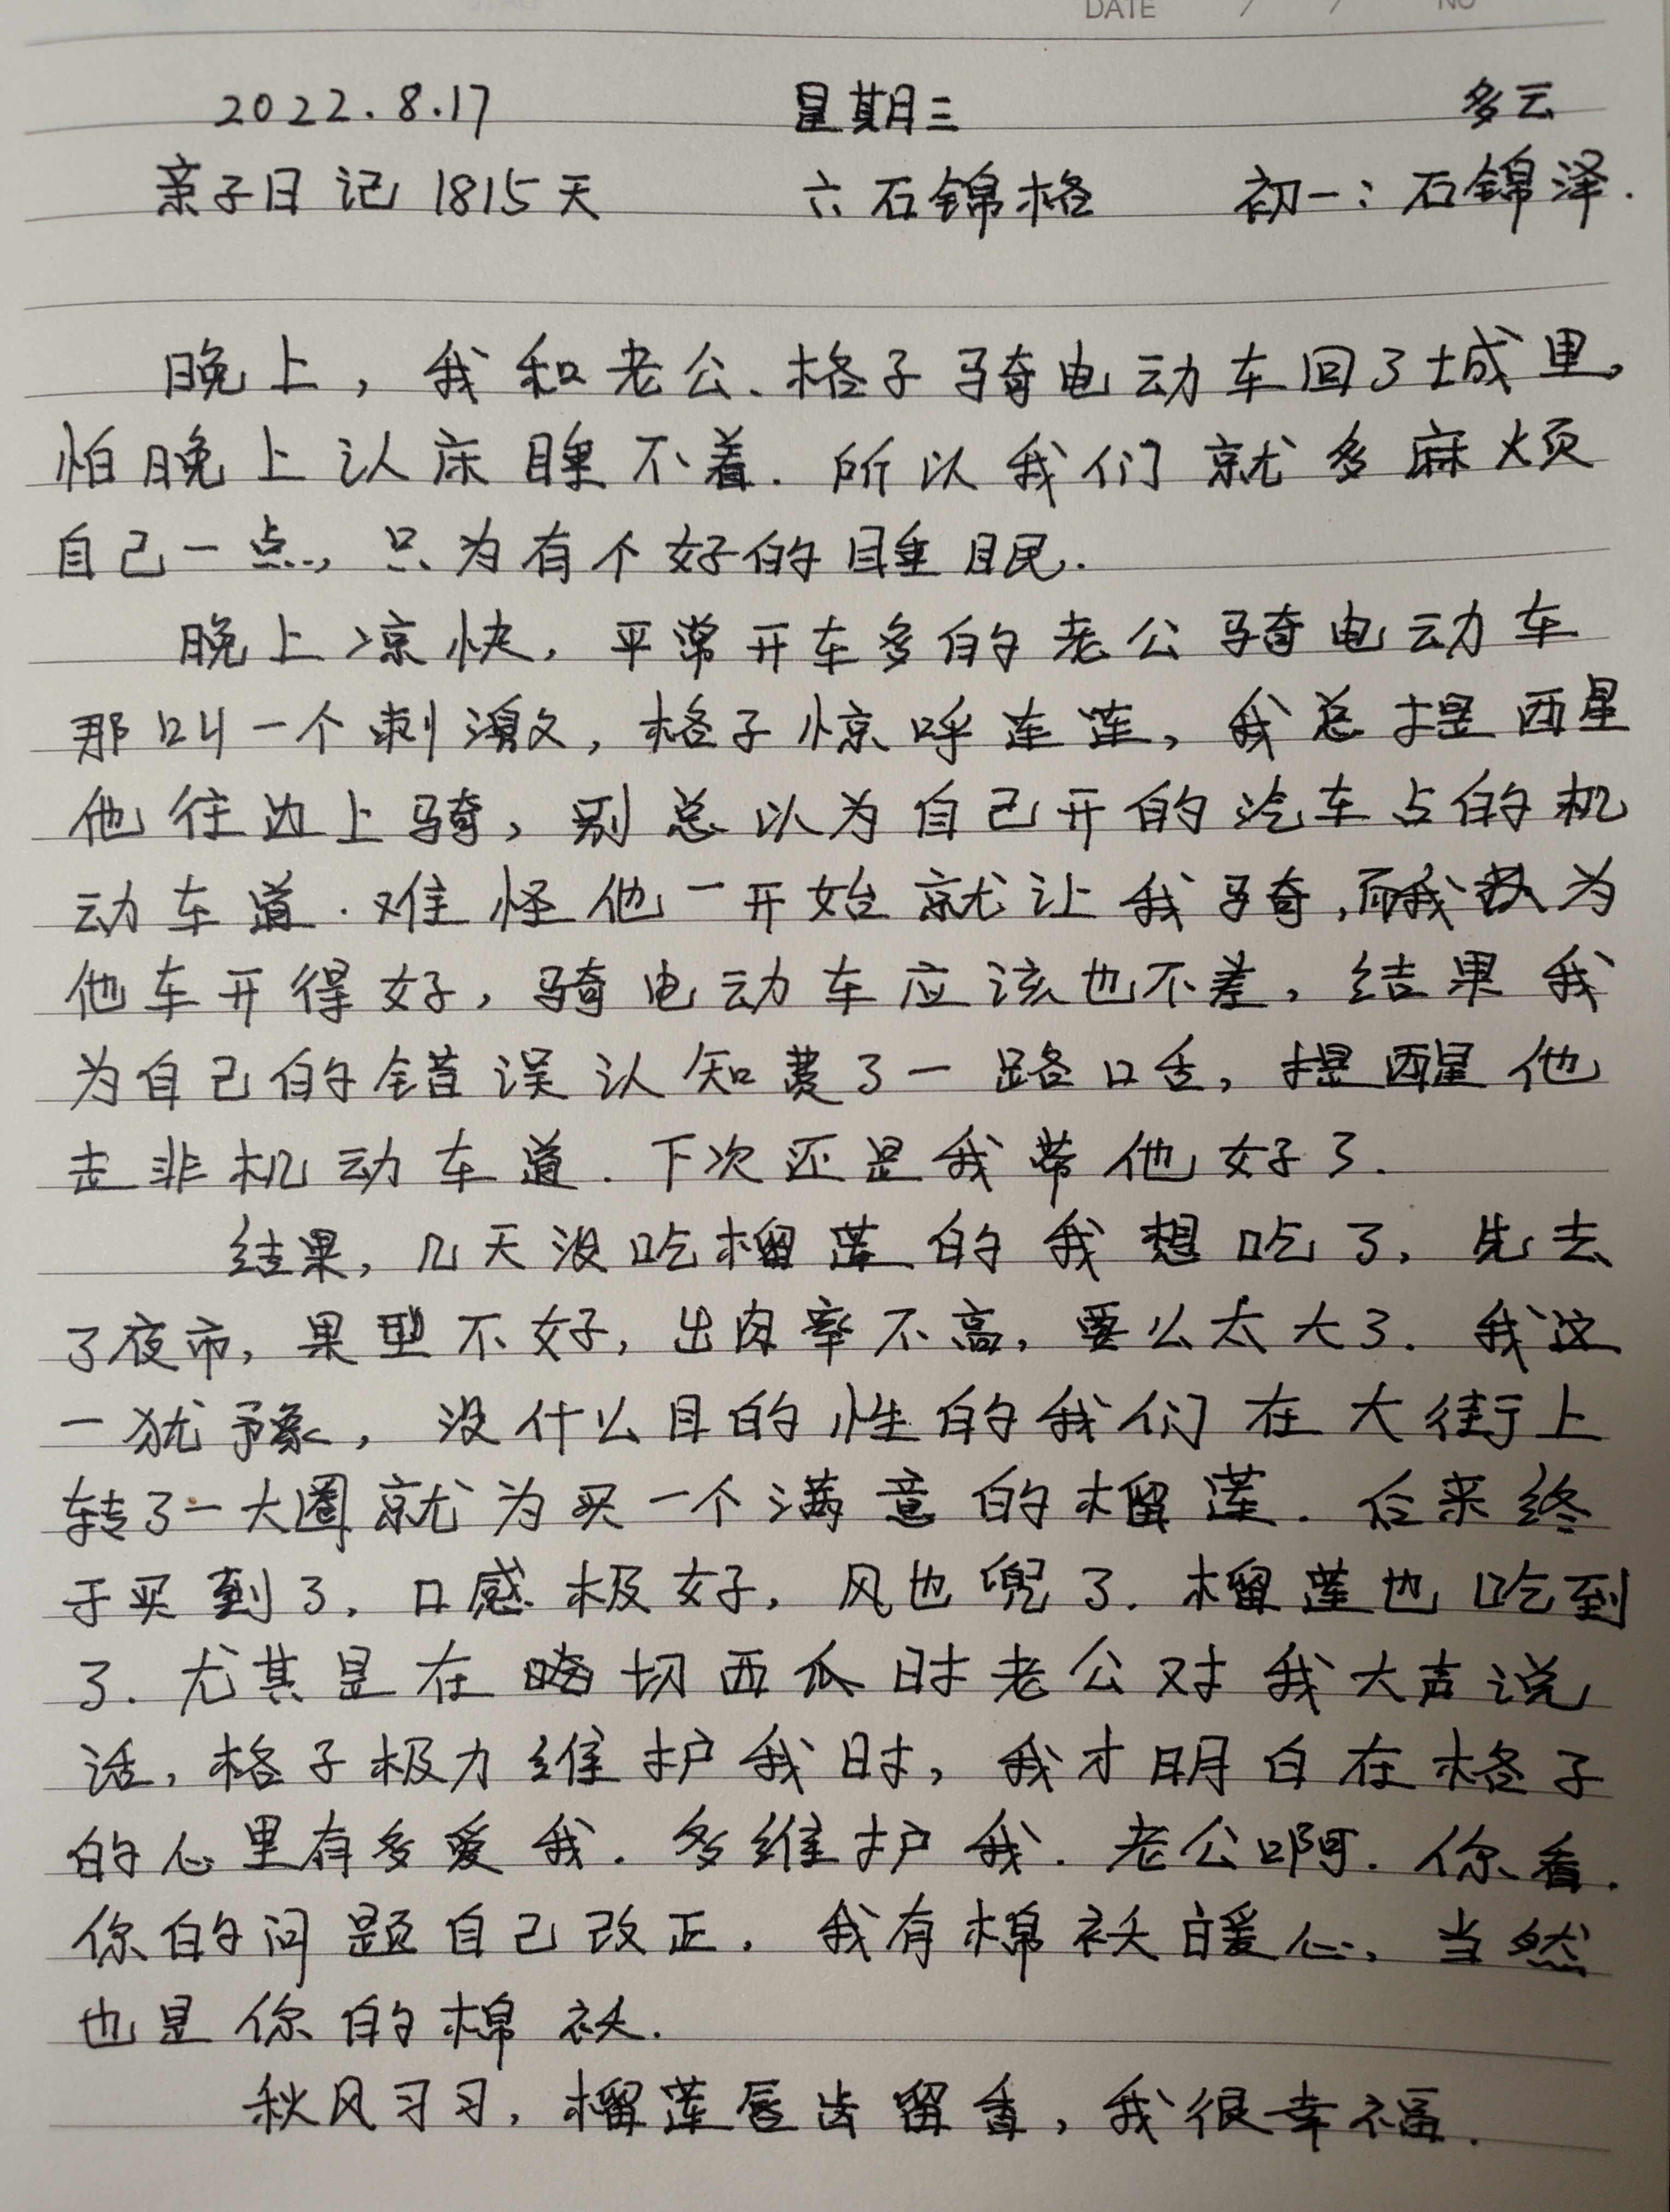 DATE / / NO
2022.8.17 星期三 多云
亲子日记1815天 六石锦格 初一:石锦泽.
晚上,我和老公、格子骑电动车回了城里。
怕晚上认床睡不着.所以我们就多麻烦
自己一点,只为有个好的睡眠.
晚上凉快,平常开车多的老公骑电动车
那叫一个刺激,格子惊呼连连,我总提醒
他往边上骑,别总以为自己开的汽车占的机
动车道.难怪他一开始就让我骑,而我认为
他车开得好,骑电动车应该也不差,结果我
为自己的错误认知费了一路口舌,提醒他
走非机动车道.下次还是我带他好了.
结果,几天没吃榴莲的我想吃了,先去
了夜市,果型不好,出肉率不高,要么太大了.我这
一犹豫,没什么目的性的我们在大街上
转了一大圈就为买一个满意的榴莲.后来终
于买到了,口感极好,风也兜了.榴莲也吃到
了.尤其是在 切西瓜时老公对我大声说
话,格子极力维护我时,我才明白在格子
的心里有多爱我.多维护我.老公啊.你看.
你的问题自己改正.我有棉袄暖心,当然
也是你的棉袄.
秋风习习,榴莲唇齿留香,我很幸福.